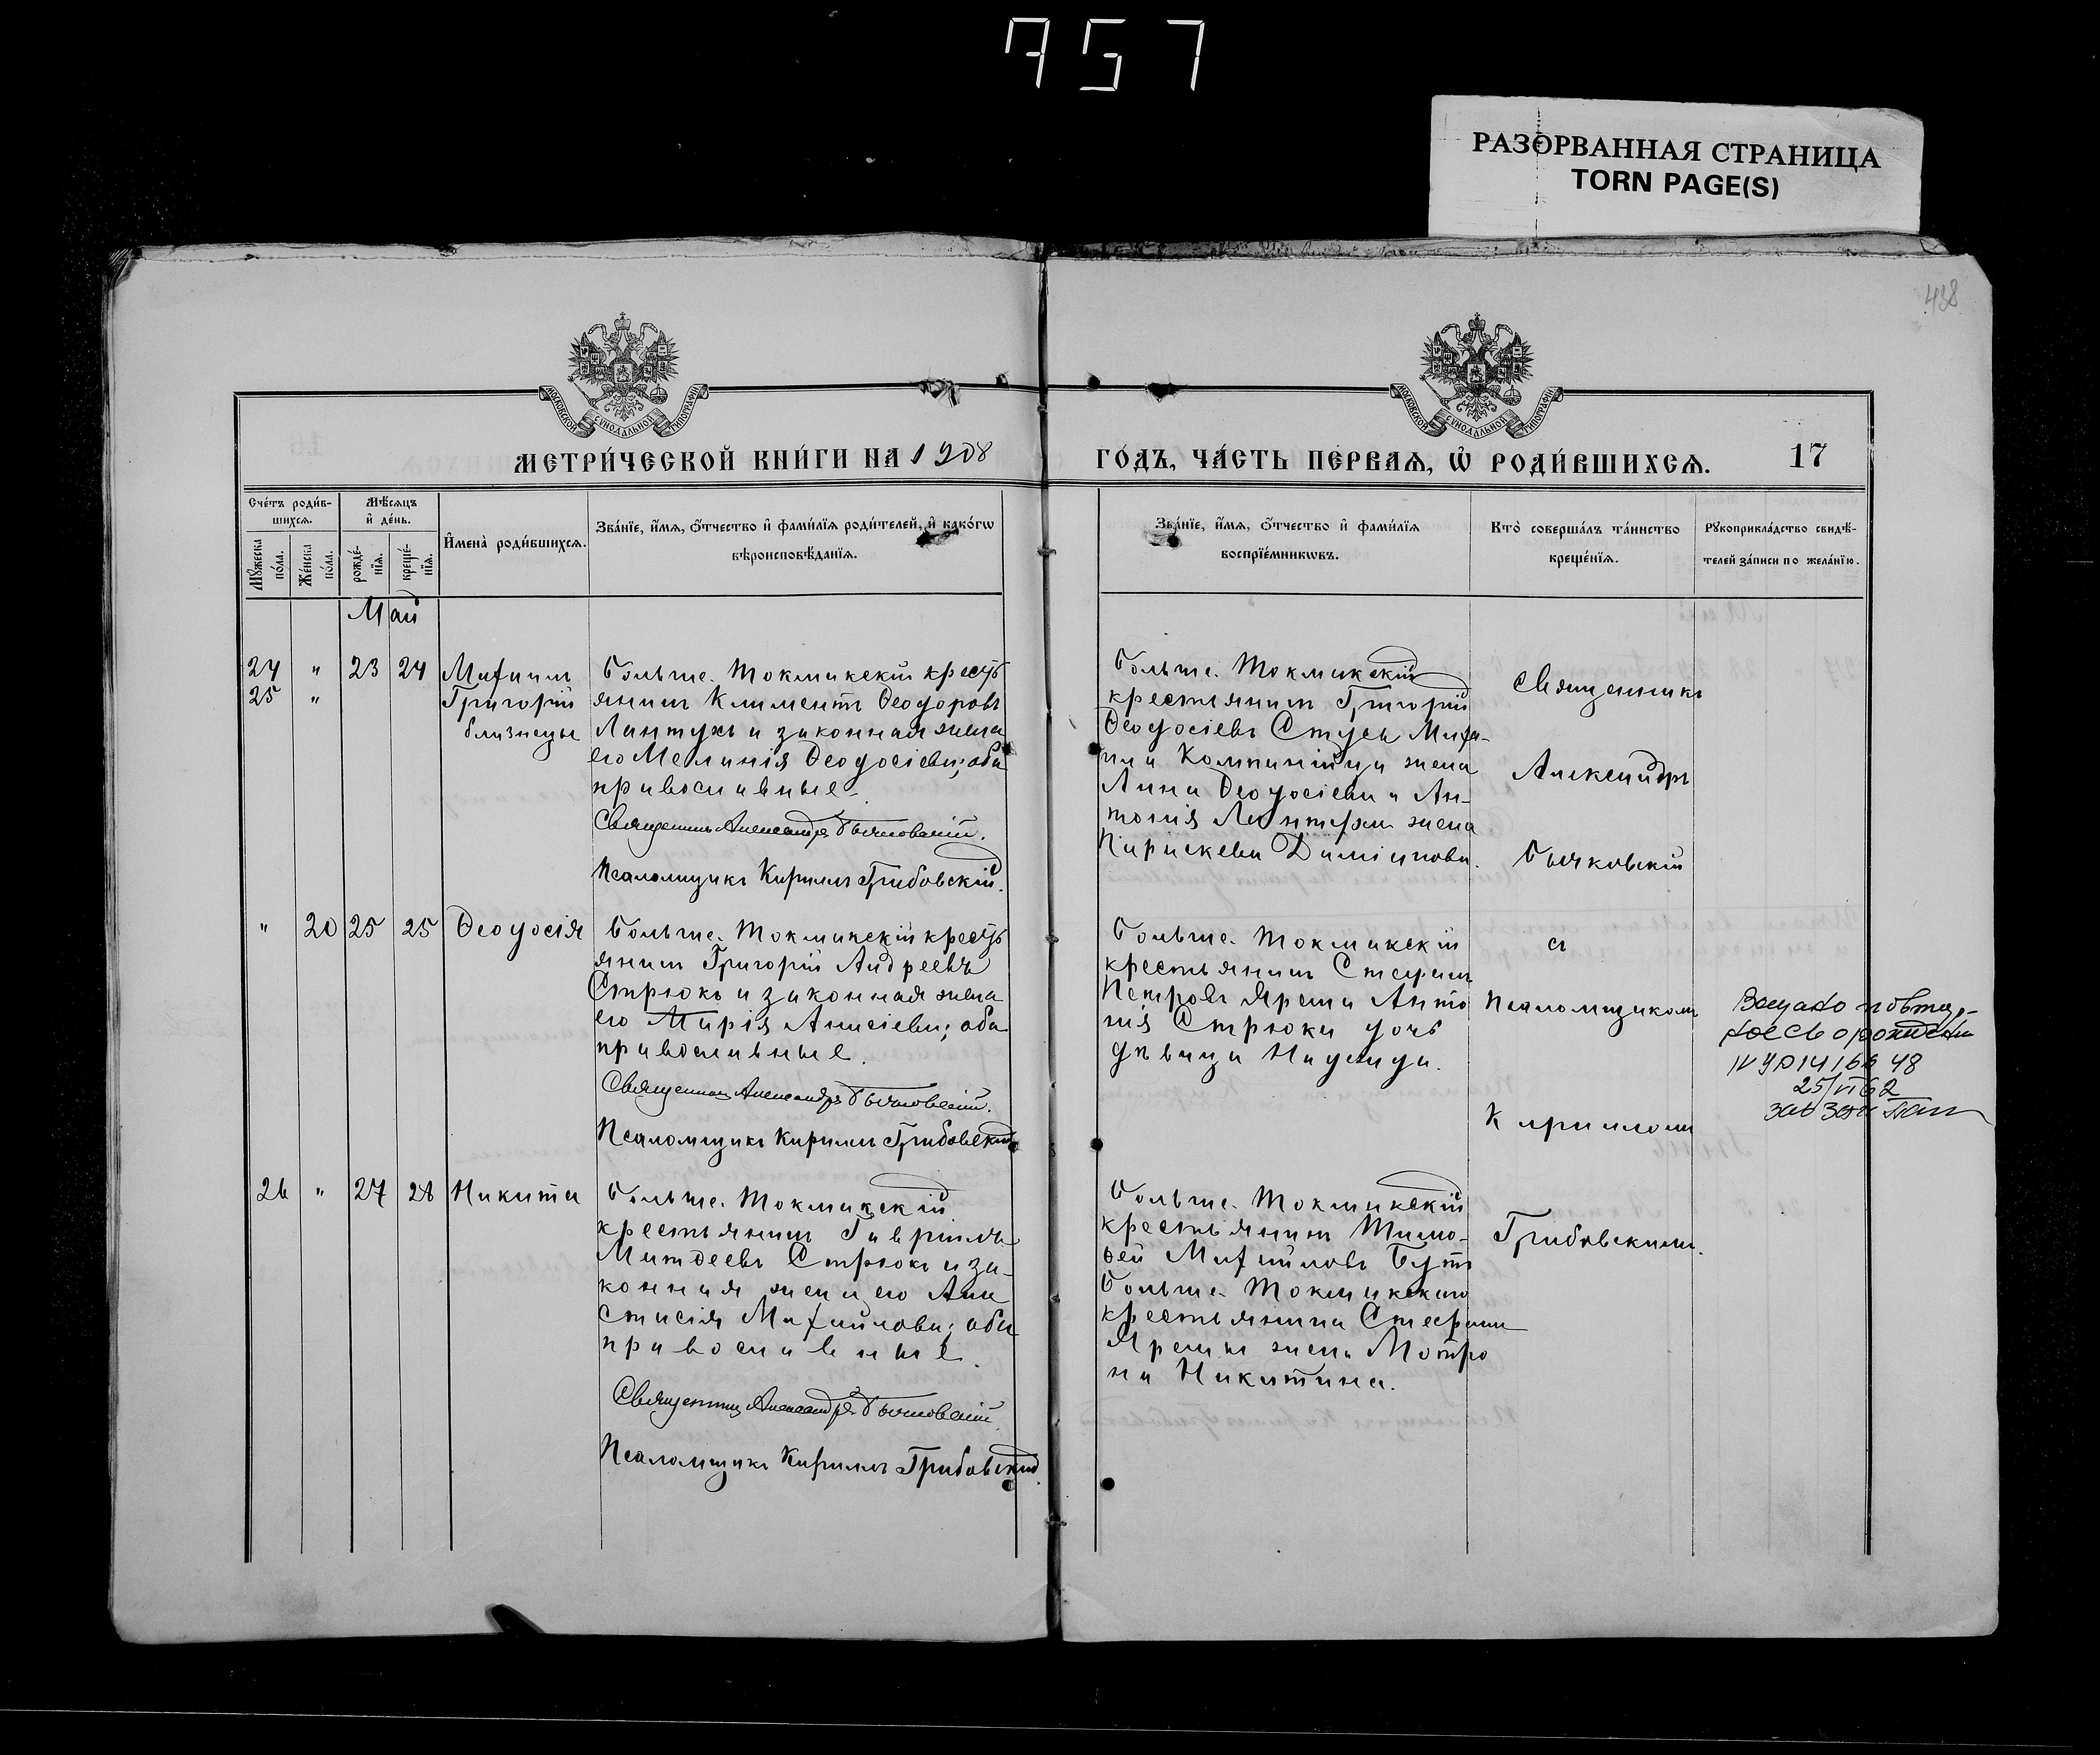 757
РАЗОРВАННАЯ СТРАНИЦА
TORN PAGE(S)
438
МОСКОВСКОЙ СУНОДАЛЬНОЙ ТИПОГРАФІИ
МОСКОВСКОЙ СУНОДАЛЬНОЙ ТИПОГРАФІИ
МЕТРИ́ЧЕСКОЙ КНИ́ГИ НА 1908
ГО́ДЪ, ЧА́СТЬ ПЕ́РВАѦ, Ѡ҆ РОДИ́ВШИХСѦ. 17
Сче́тъ роди́в-
шихсѧ.
Мꙋ́жеска по́ла.
Же́нска по́ла.
Мѣ́сѧцъ
и҆ де́нь.
рожде́-
нїѧ.
креще́-
нїѧ.
И҆мена̀ роди́вшихсѧ.
Зва́нїе, и҆́мѧ, ѻ҆́тчество и҆ фами́лїѧ роди́телей, и҆ како́гѡ
вѣроисповѣ́данїѧ.
Зва́нїе, и҆́мѧ, ѻ҆́тчество и҆ фами́лїѧ
воспрїе́мникѡвъ.
Кто̀ соверша́лъ та́инство
креще́нїѧ.
Рꙋкоприкла́дство свидѣ́-
телей за́писи по жела́нїю.
Май
24 " 23 24 Михаилъ
25 " Григорій
близнецы
Больше-Токмакскій кресть
янинъ Климентъ Ѳеодоровъ
Лантухъ и законная жена
его Меланія Ѳеодосіева; оба
православные
Священникъ Александръ Бычковскій.
Псаломщикъ Кириллъ Грибовскій.
Больше-Токмакскій
крестьянинъ Григорій
Ѳеодосіевъ Стусь Миха-
ила Компанійца жена
Анна Ѳеодосіева и Ан-
тонія Лантуха жена
Параскева Даміанова.
Священникъ
Александръ
Бычковскій
" 20 25 25 Ѳеодосія
Больше-Токмакскій кресть
янинъ Григорій Андреевъ
Стрюкъ и законная жена
его Марія Алексіева; оба
православные.
Священникъ Александръ Бычковскій.
Псаломщикъ Кириллъ Грибовскій
Больше-Токмакскій
крестьянинъ Стефанъ
Петровъ Ярема Анто
нія Стрюка дочь
дѣвица Надежда.
съ
Псаломщикомъ
Кирилломъ
Выдано повтор-
ное св о рождении
25/VI 62
26 " 27 28 Никита
Больше-Токмакскій
крестьянинъ Гавріилъ
Матѳеевъ Стрюкъ и за-
конная жена его Ана
стасія Михайлова; оба
православные.
Священникъ Александръ Бычковскій
Псаломщикъ Кириллъ Грибовскій.
Больше-Токмакскій
крестьянинъ Тимо-
ѳей Михайловъ Бутъ
Больше-Токмакскаго
крестьянина Стефана
Яремы жена Матро
на Никитина.
Грибовскимъ.